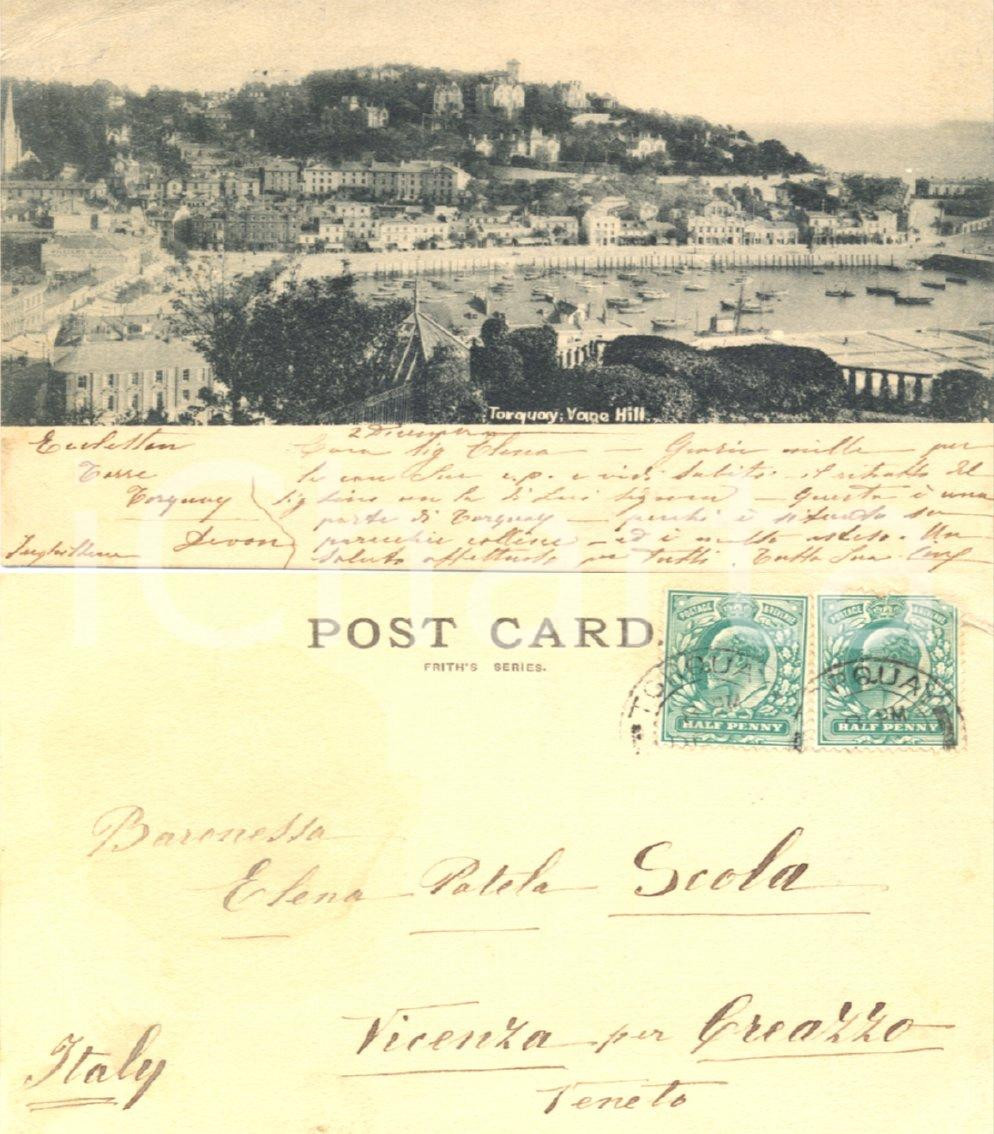 Torquay, Vane Hill.
2 Dicembre
Torre
Torquay
Devon
Inghilterra
Cara Sig Elena — Grazie mille per
le care Sue e.p. e vidi subito il ritratto del
— Questa è una
parte di Torquay — perchè è situato su
parecchie colline — ed è molto esteso. Un
saluto affettuoso per tutti. Tutta Sua
iCharta
POST CARD.
FRITH'S SERIES.
POSTAGE & REVENUE
HALF PENNY
POSTAGE & REVENUE
HALF PENNY
TORQUAY
TORQUAY
PM
Baronessa
Elena Patela Scola
Vicenza per Creazzo
Italy
Veneto